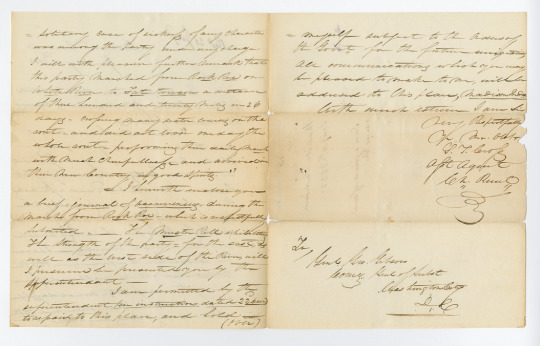 solitary case of sickness of any character
was among the party under my charge
I will with pleasure further remark that
this party marched from Rock Roe on
White River to Fort Towson a distance
of three hundred and twenty miles in 26
days - crossing many water courses on the
rout - and laid at rest one day the
whole rout - performing the daily march
with much cheerfullness and arrived in
their New Country in good spirits
I herewith enclose you
a brief journal of occurrences, during the
march from Rock Roe - which is respectfully
submitted - The Muster Roll
The strength of the party - for the east, as
well as the west side of the River, will
I presume be presented you by the
Superintendent
I am permitted by the
superintendent
to repair to this place, and hold
(over)
myself subject to the orders of
the Govt for the future emigration
All communications which you may
be pleased to make to me, will be
addressed to this place,
With much esteem I am Sir
Very Respectfully
Yr
Asst Agent
To
Genl Geo. Gibson
Comy Genl of Subst
Washington City
D. C.